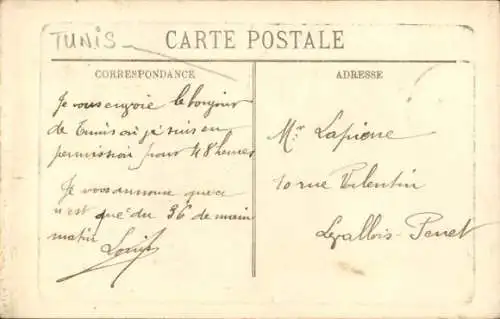 TUNIS
CARTE POSTALE
CORRESPONDANCE
ADRESSE
Je vous envoie le bonjour
de Tunis où je suis en
permission pour 48 heures
Je vous annonce que ce
n'est que du 36 de main
matin
Louis
Mr. Lapierre
10 rue Vilentin
Levallois-Perret